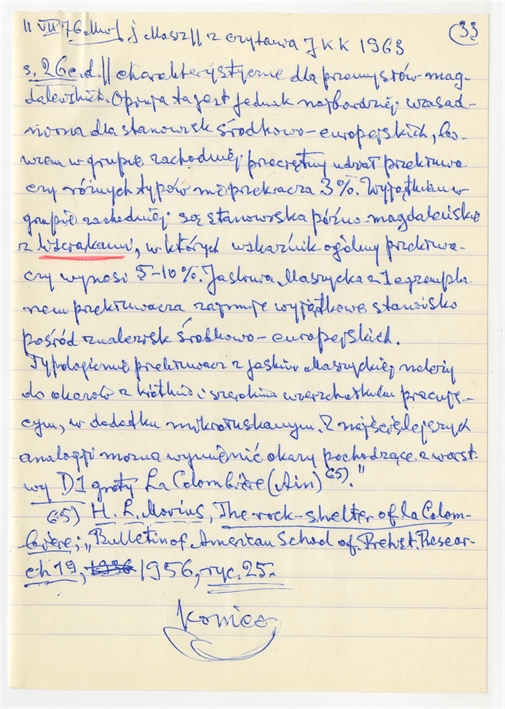 11 VII 76. j Masz || z czytawa JKK 1963 (33)
s. 26 c.d. || charakterystyczne dla przemysłów mag-
daleńskich. Opinja ta jest jednak najbardziej uzasad-
niona dla stanowisk środkowo-europejskich, bo-
wiem w grupie zachodniej przeciętny udział przekłuwa-
czy różnych typów nie przekracza 3%. Wyjątkiem w
grupie zachodniej są stanowiska późno-magdaleńskie
z liściakami, w których wskaźnik ogólny przekłuwa-
czy wynosi 5-10%. Jaskinia Maszycka z 1 egzempla-
rzem przekłuwacza zajmuje wyjątkowe stanowisko
pośród znalezisk środkowo-europejskich.
Typologicznie przekłuwacz z jaskini Maszyckiej należy
do okazów z krótkim i szerokim wierzchołkiem pracują-
cym, w dodatku mikrołuskanym. Z najściślejszych
analogji można wymienić okazy pochodzące z warst-
wy D1 groty La Colombière (Ain) 65)."
65) H. L. Movius, The rock-shelter of la Colom-
bière; "Bulletin of American School of Prehist. Resear-
ch 19, 1956, ryc. 25.
Koniec